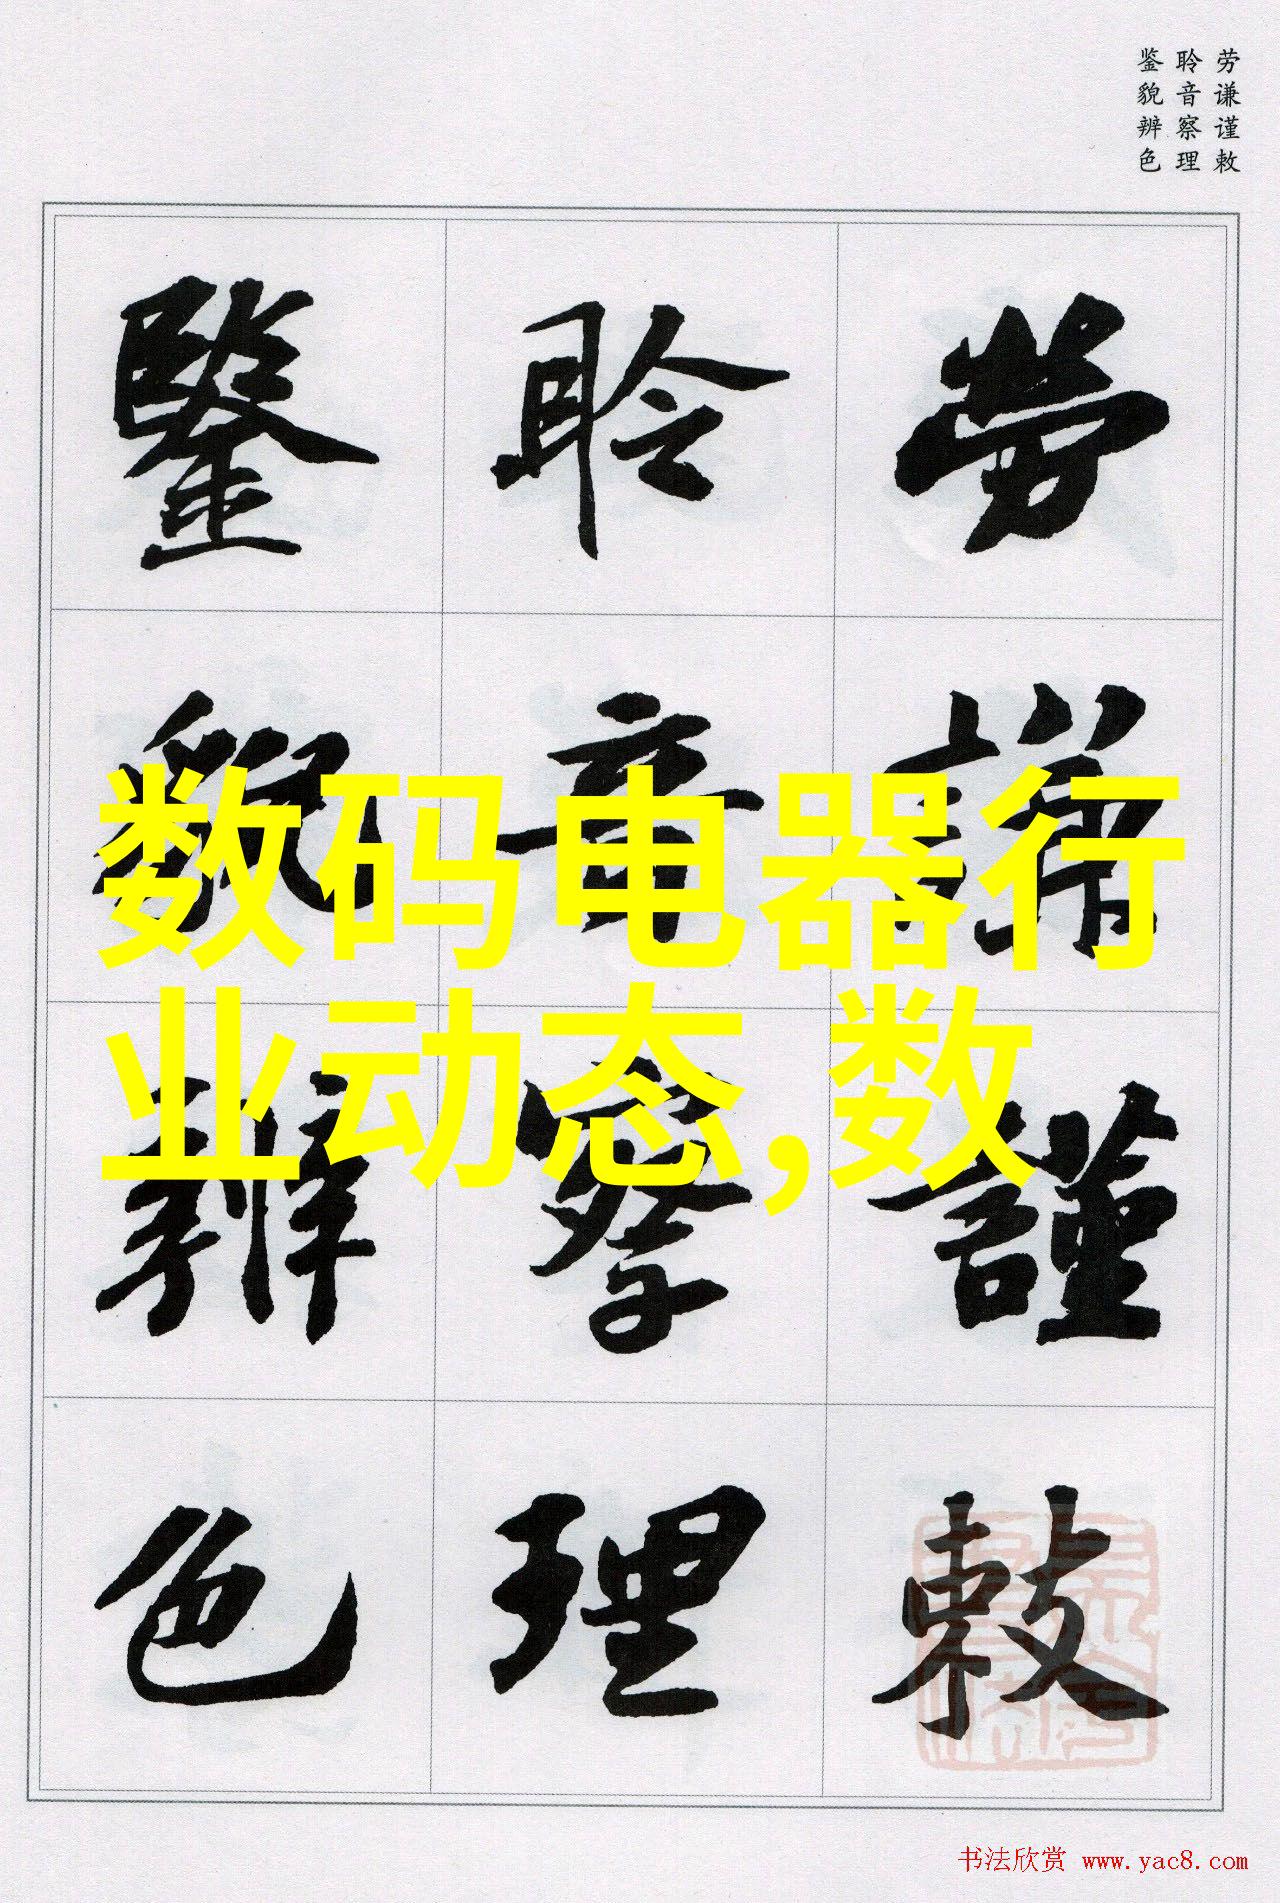 劳谦谨敕
聆音察理
鉴貌辨色
勞謙謹敕
聆音察理
鑒貌辨色
数码电器行
业动态,数
书法欣赏 www.yac8.com